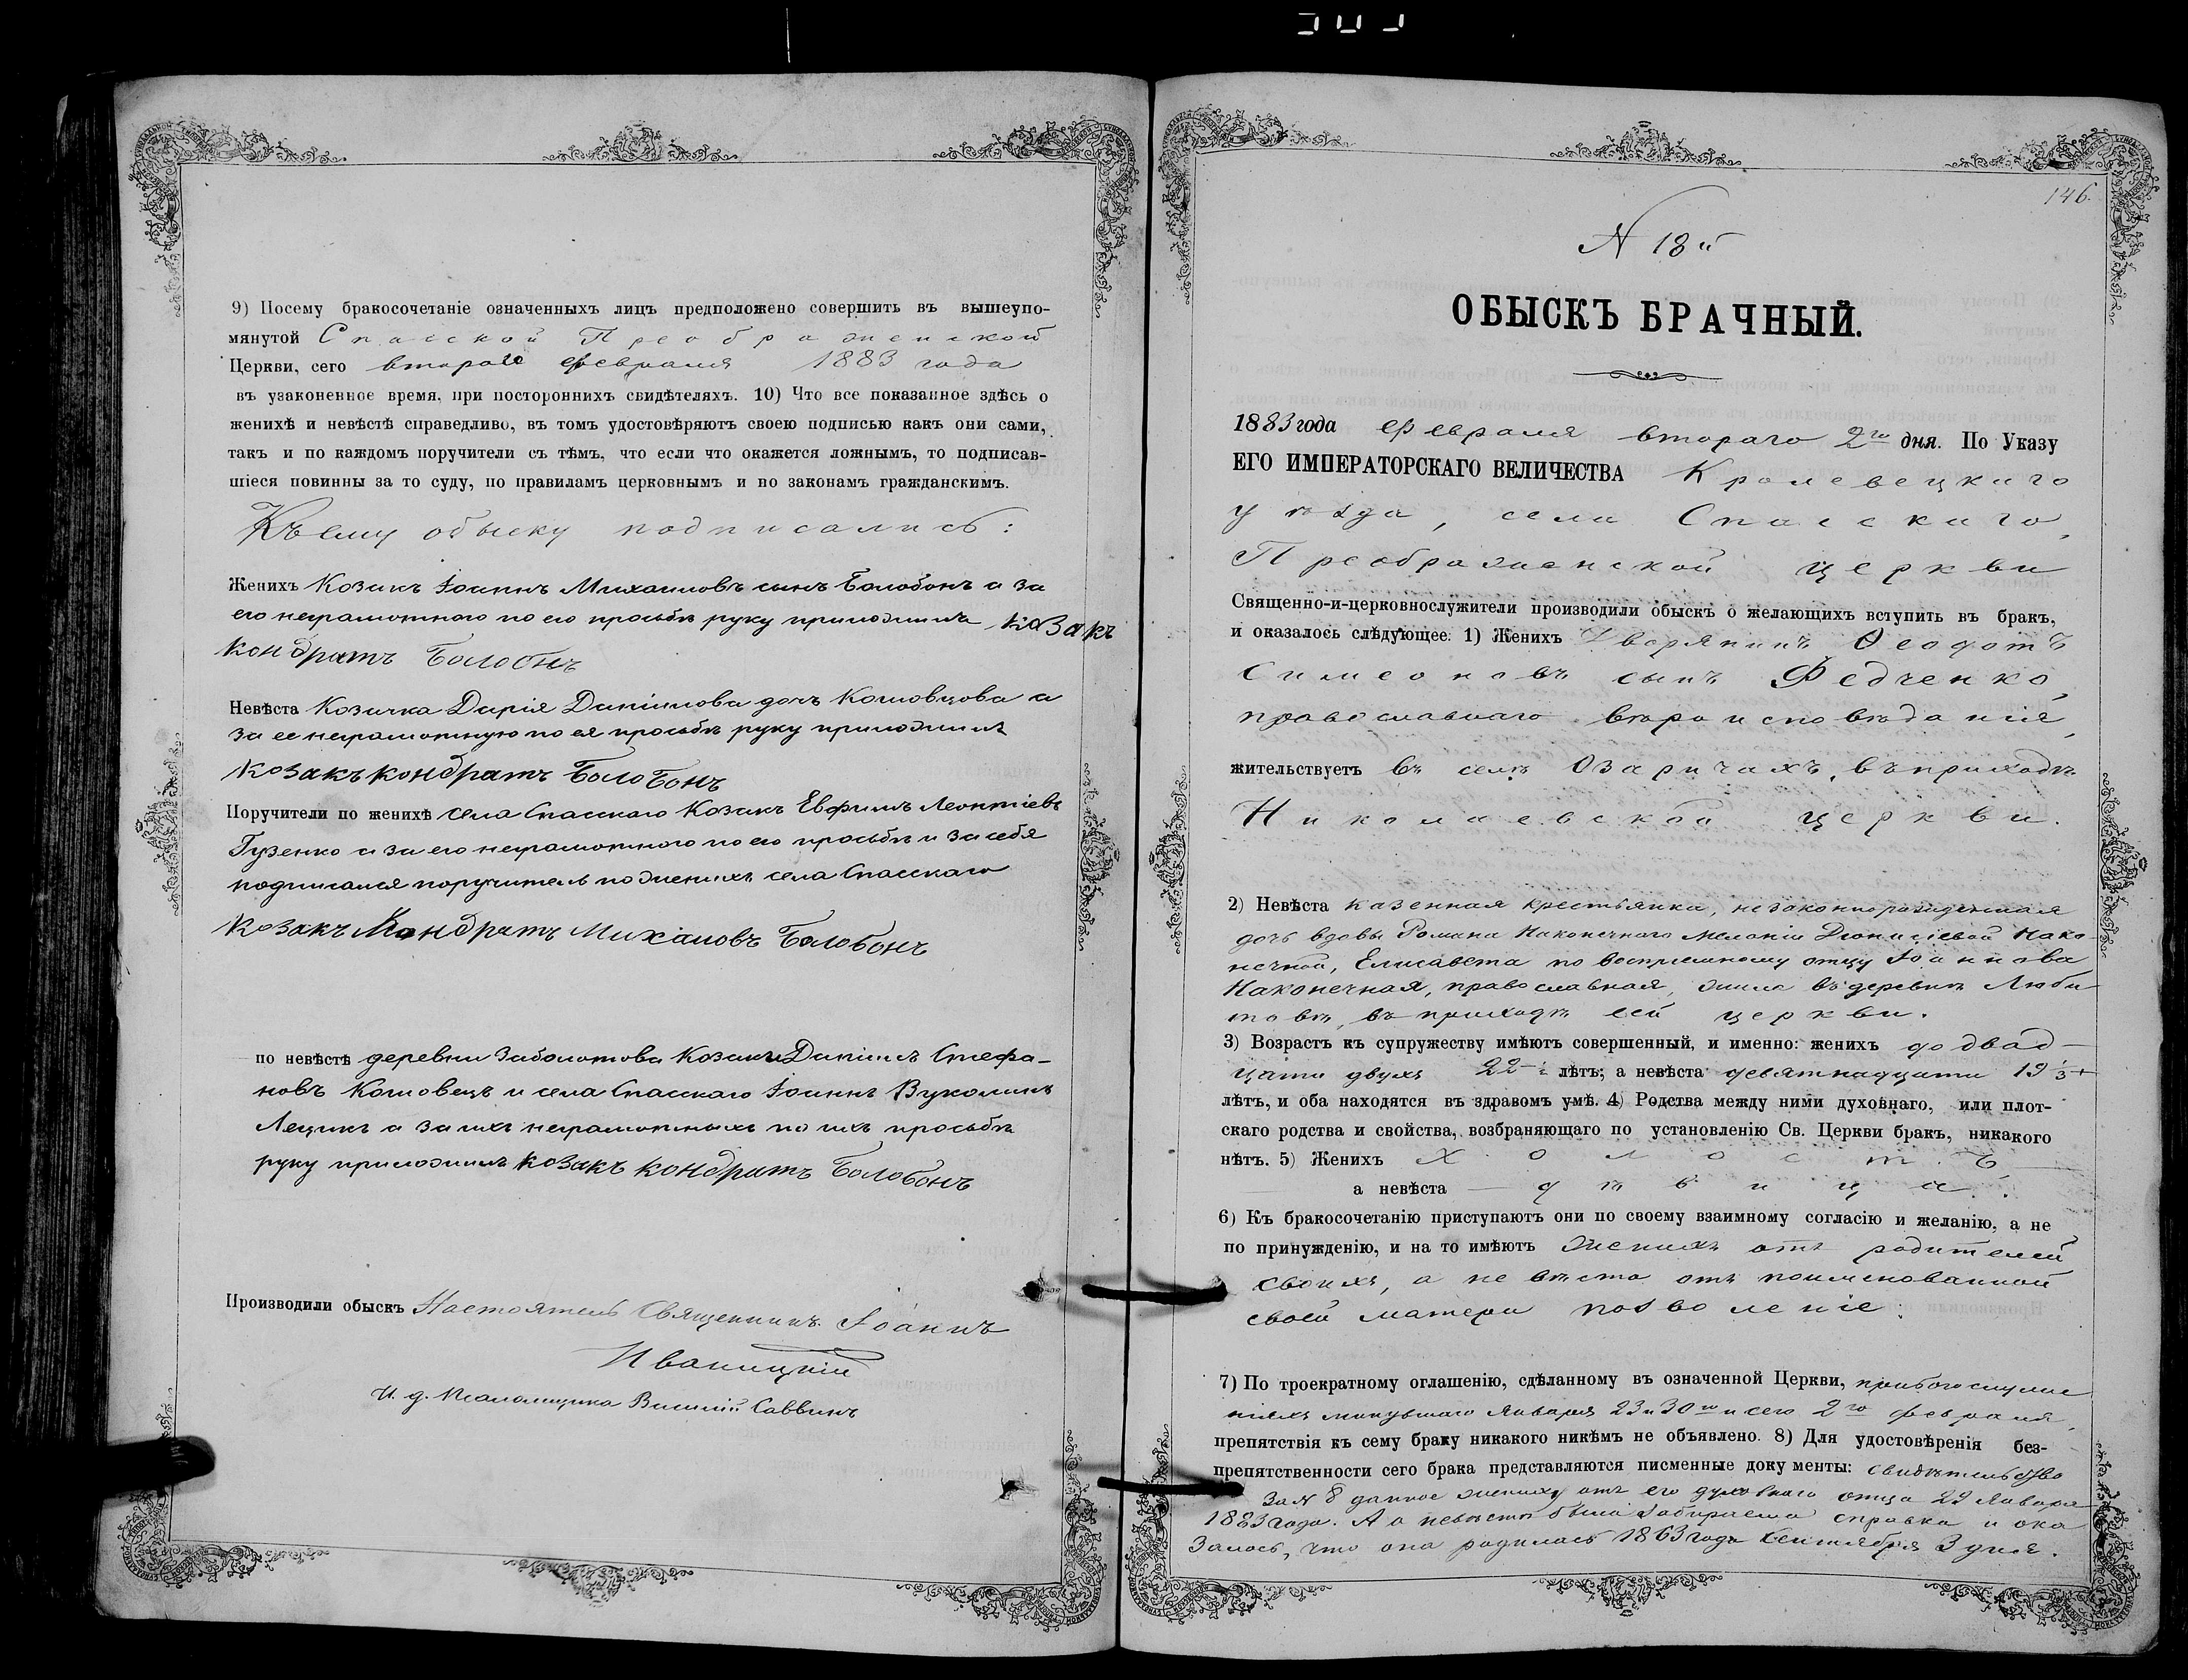 9) Посему бракосочетаніе означенныхъ лицъ предположено совершить въ вышеупо-
мянутой Спасской Преображенской
Церкви, сего втораго февраля 1883 года
въ узаконенное время, при постороннихъ свидѣтеляхъ. 10) Что все показанное здѣсь о
женихѣ и невѣстѣ справедливо, въ томъ удостовѣряютъ своею подписью какъ они сами,
такъ и по каждомъ поручители съ тѣмъ, что если что окажется ложнымъ, то подписав-
шіеся повинны за то суду, по правиламъ церковнымъ и по законамъ гражданскимъ.
Къ сему обыску подписались:
Женихъ Козакъ Іоаннъ Михаиловъ сынъ Болобонъ а за
его неграмотнаго по его просьбѣ руку приложилъ козакъ
кондратъ Болобнъ
Невѣста Козачка Дарія Даніилова дочь Коховцова а
за ее неграмотную по ея просьбѣ руку приложилъ
козакъ кондратъ Болобонъ
Поручители по женихѣ села Спасскаго Козакъ Евфимъ Леонтіевъ
Гузенко а за его неграмотнаго по его просьбѣ и за себя
подписался поручитель по женихѣ села Спасскаго
козакъ Кондратъ Михаловъ Болобонъ
по невѣстѣ деревни Заболотова Козакъ Даніилъ Стефа-
новъ и села Спасскаго Іоаннъ Вуколинъ
Лещикъ а за ихъ неграмотныхъ по ихъ просьбѣ
руку приложилъ козакъ кондратъ Болобонъ
Производили обыскъ Настоятель Священникъ Іоаннъ
Иваницкій
И. д. Псаломщика Василій Саввинъ
146.
N 18й
ОБЫСКЪ БРАЧНЫЙ.
1883 года февраля втораго 2го дня. По Указу
ЕГО ИМПЕРАТОРСКАГО ВЕЛИЧЕСТВА Кролевецкаго
уѣзда, села Спасскаго,
Преображенской церкви
Священно-и-церковнослужители производили обыскъ о желающихъ вступить въ бракъ,
и оказалось слѣдующее: 1) Женихъ Дворянинъ Ѳеодотъ
Симеоновъ сынъ Федченко,
православнаго вѣроисповѣданія,
жительствуетъ въ селѣ Озаричахъ, въ приходѣ
Николаевской церкви.
2) Невѣста казенная крестьянка, незаконнорожденная
дочь вдовы Романа Наконечнаго Меланіи Діонисіевой Нако-
нечной, Елисавета по воспріемному отцу Іоаннова
Наконечная, православная, жила въ деревнѣ Люби
товѣ, въ приходѣ сей церкви.
3) Возрастъ къ супружеству имѣютъ совершенный, и именно: женихъ до двад-
цати двухъ 22 лѣтъ; а невѣста девятнадцати 19 1/3
лѣтъ, и оба находятся въ здравомъ умѣ. 4) Родства между ними духовнаго, или плот-
скаго родства и свойства, возбраняющаго по установленію Св. Церкви бракъ, никакого
нѣтъ. 5) Женихъ холостъ
а невѣста дѣвица.
6) Къ бракосочетанію приступаютъ они по своему взаимному согласію и желанію, а не
по принужденію, и на то имѣютъ женихъ отъ родителей
своихъ, а невѣста отъ поименованной
своей матери позволеніе:
7) По троекратному оглашенію, сдѣланному въ означенной Церкви, при богослуже
ніяхъ минувшаго Января 23 и 30го и сего 2го февраля,
препятствія къ сему браку никакого никѣмъ не объявлено. 8) Для удостовѣренія без-
препятственности сего брака представляются писменные документы: свидѣтельство
за N 8 данное жениху отъ его духовнаго отца 29 Января
1883 года. А о невѣстѣ была забираема справка и ока
залось, что она родилась 1863 года Сентября 3 дня.